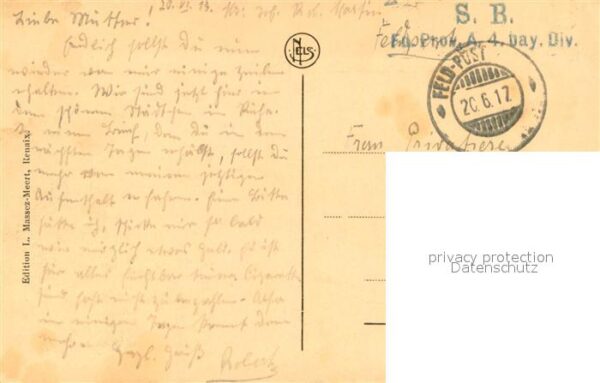 Liebe Mutter!
Endlich sollst Du nun
wieder von mir einige Zeilen
erhalten. Wir sind jetzt hier in
dem schönen Städtchen in Ruhe.
In einem Brief, den Du in den
nächsten Tagen erhältst, sollst Du
mehr von meinem jetzigen
Aufenthalt erfahren. Eine Bitte
hätte ich, schicke mir so bald
wie möglich etwas Geld. Es ist
hier alles furchtbar teuer. Cigaretten
sind fast nicht zu bezahlen. Also
in einigen Tagen kommt dann
mehr. Herzl. Gruß
Robert
Edition L. Massez-Meert, Renaix.
NELS
S. B.
Feldpost
A. 4. bay. Div.
FELD-POST
20.6.17
Frau Privatiere
privacy protection
Datenschutz